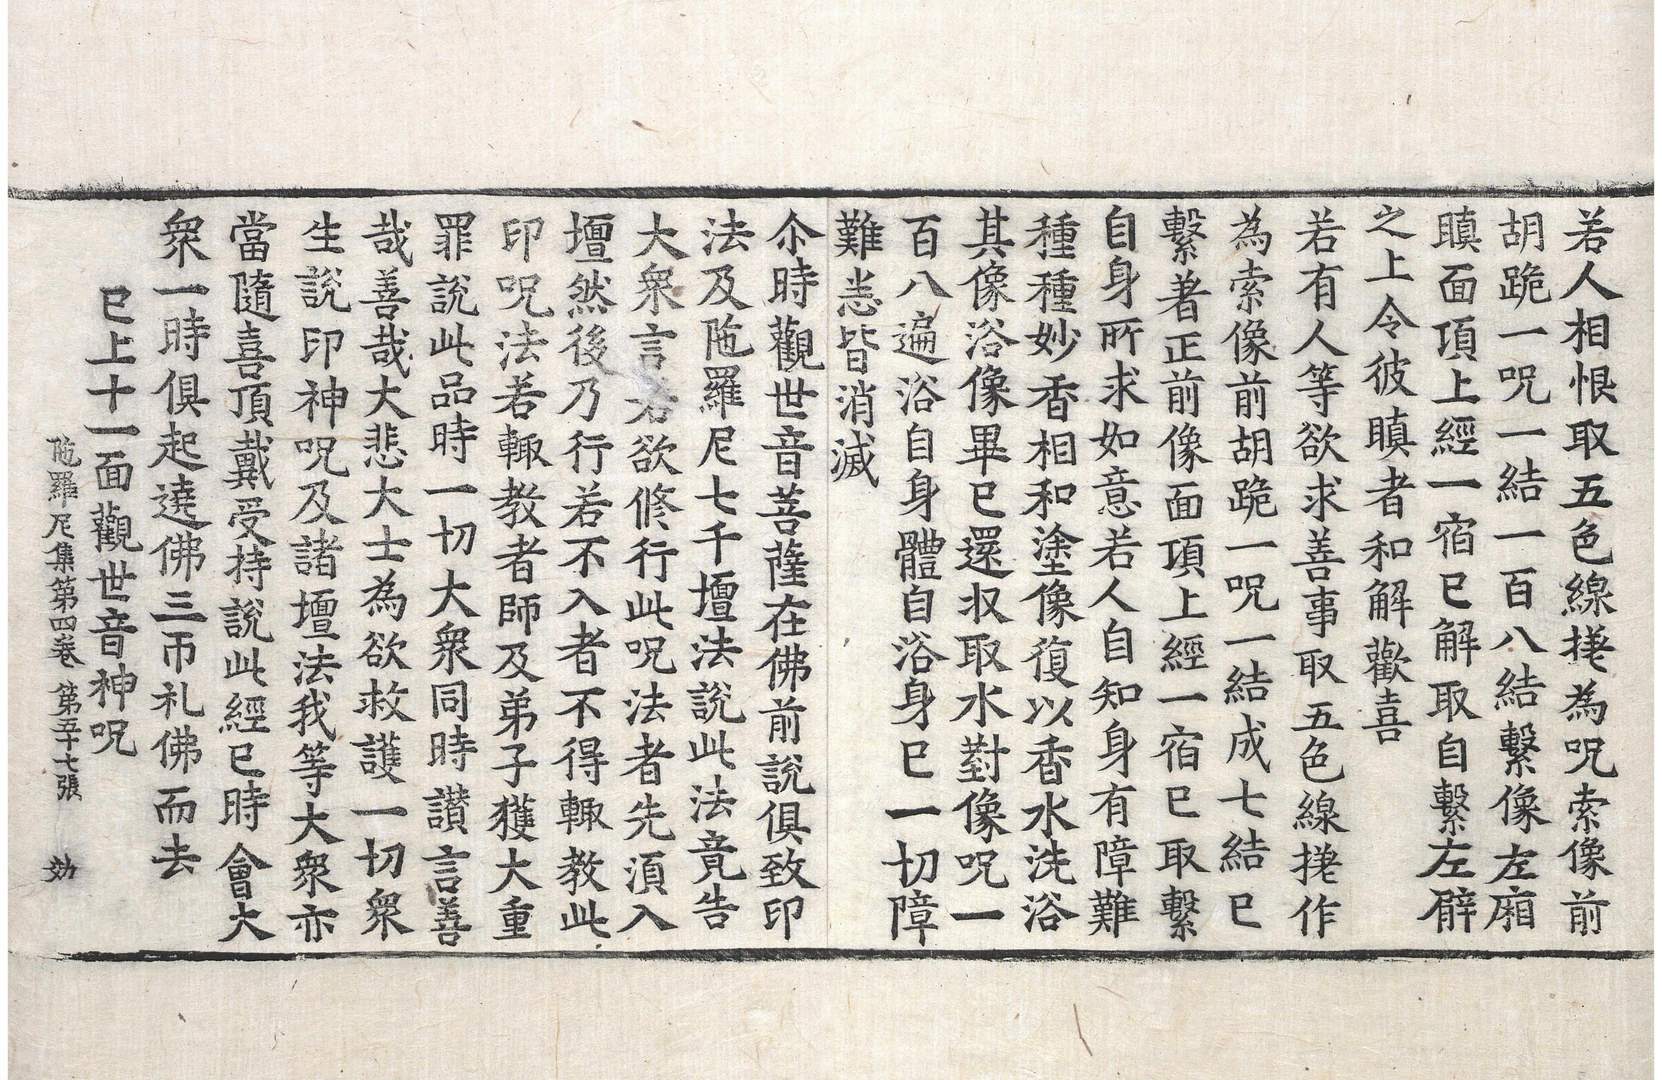 若人相恨取五色線搓為呪索像前
胡跪一呪一結一百八結繫像左廂
瞋面項上經一宿已解取自繫左臂
之上令彼瞋者和解歡喜
若有人等欲求善事取五色線搓作
為索像前胡跪一呪一結成七結已
繫著正前像面項上經一宿已取繫
自身所求如意若人自知身有障難
種種妙香相和塗像復以香水洗浴
其像浴像畢已還収取水對像呪一
百八遍浴自身體自浴身已一切障
難悉皆消滅
尒時觀世音菩薩在佛前說俱致印
法及陁羅尼七千壇法說此法竟告
大衆言若欲修行此呪法者先須入
壇然後乃行若不入者不得輙教此
印呪法若輙教者師及弟子獲大重
罪說此品時一切大衆同時讃言善
哉善哉大悲大士為欲救護一切衆
生說印神呪及諸壇法我等大衆亦
當隨喜頂戴受持說此經已時會大
衆一時俱起遶佛三帀礼佛而去
已上十一面觀世音神呪
陁羅尼集第四卷 第五十七張 効